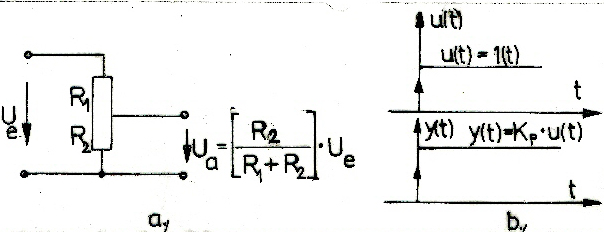 U_e
R_1
R_2
U_a = [R_2 / (R_1 + R_2)] · U_e
a,
u(t)
u(t) = 1(t)
t
y(t)
y(t)=K_p·u(t)
t
b,